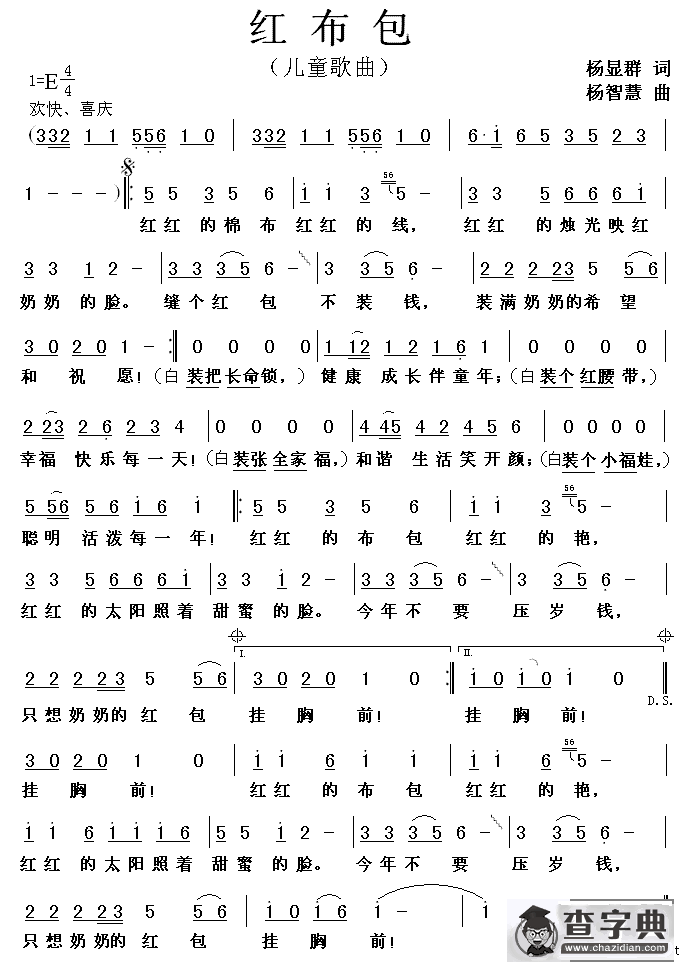 红布包
（儿童歌曲）
1=E 4/4
杨显群 词
杨智慧 曲
欢快、喜庆
(332 1 1 556 1 0 | 332 1 1 556 1 0 | 6·i 6 5 3 5 2 3 |
1 - - - ) |: 5 5 3 5 6 | i i 3 56 5 - | 3 3 5 6 6 6 i |
红红的棉布红红的线，红红的烛光映红
3 3 1 2 - | 3 3 3 5 6 - | 3 3 5 6 - | 2 2 2 23 5 5 6 |
奶奶的脸。缝个红包不装钱，装满奶奶的希望
3 0 2 0 1 - :| 0 0 0 0 | 1 12 1 2 1 6 1 | 0 0 0 0 |
和祝愿!（白装把长命锁，）健康成长伴童年；（白装个红腰带，）
2 23 2 6 2 3 4 | 0 0 0 0 | 4 45 4 2 4 5 6 | 0 0 0 0 |
幸福快乐每一天!（白装张全家福，）和谐生活笑开颜；（白装个小福娃，）
5 56 5 6 i 6 i |: 5 5 3 5 6 | i i 3 56 5 - |
聪明活泼每一年! 红红的布包红红的艳，
3 3 5 6 6 6 i | 3 3 1 2 - | 3 3 3 5 6 - | 3 3 5 6 - |
红红的太阳照着甜蜜的脸。今年不要压岁钱，
I. II.
2 2 2 23 5 5 6 | 3 0 2 0 1 0 :| i 0 i 0 i 0 ‖
D.S.
只想奶奶的红包挂胸前! 挂胸前!
3 0 2 0 1 0 | i i 6 i i | i i 3 56 5 - |
挂胸前! 红红的布包红红的艳，
i i 6 i i i 6 | 5 5 i 2 - | 3 3 3 5 6 - | 3 3 5 6 - |
红红的太阳照着甜蜜的脸。今年不要压岁钱，
2 2 2 23 5 5 6 | i 0 i 0 i 6 | i - -
只想奶奶的红包挂胸前!
查字典
www.chazidian.com
t